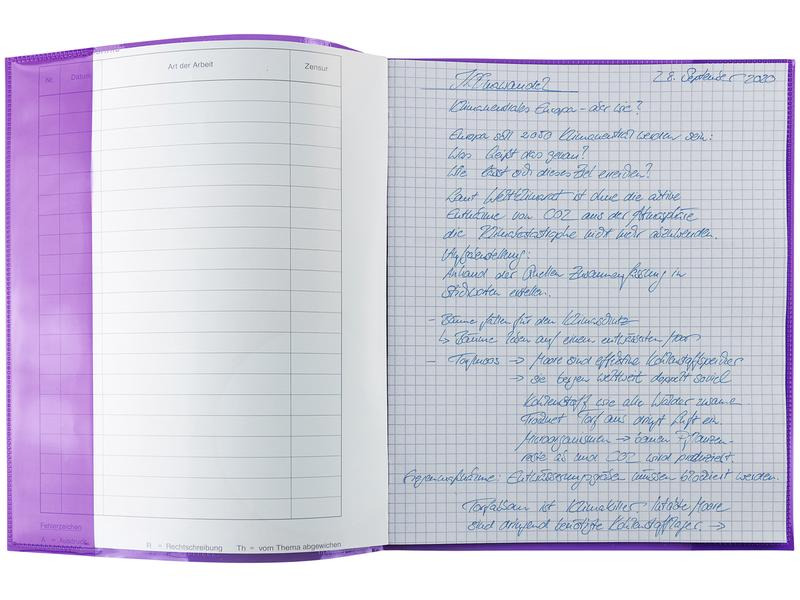 Nr.
Datum
Art der Arbeit
Zensur
Fehlerzeichen
A = Ausdruck
R = Rechtschreibung Th = vom Thema abgewichen
Klimawandel 28. September 2020
Klimaneutrales Europa - aber wie?
Europa soll 2050 klimaneutral werden sein:
Was heißt das genau?
Wie lässt sich dieses Ziel erreichen?
Laut Weltklimarat ist ohne die aktive
Entnahme von CO2 aus der Atmosphäre
die Klimakatastrophe nicht mehr abzuwenden.
Aufgabenstellung:
Anhand der Quellen Zusammenfassung in
Stichworten erstellen.
- Bäume fällen für den Klimaschutz
↳ Bäume leben auf einem entwässerten Moor
- Torfmoos → Moore sind effektive Kohlenstoffspeicher
→ sie bergen weltweit doppelt soviel
Kohlenstoff wie alle Wälder zusammen.
Torf aus dringt Luft ein
Mikroorganismen → bauen Pflanzen-
reste ab und CO2 wird produziert.
Entwässerungsgräben müssen blockiert werden.
Torfabbau ist Klimakiller Intakte Moore
sind dringend benötigte Kohlenstofflager →